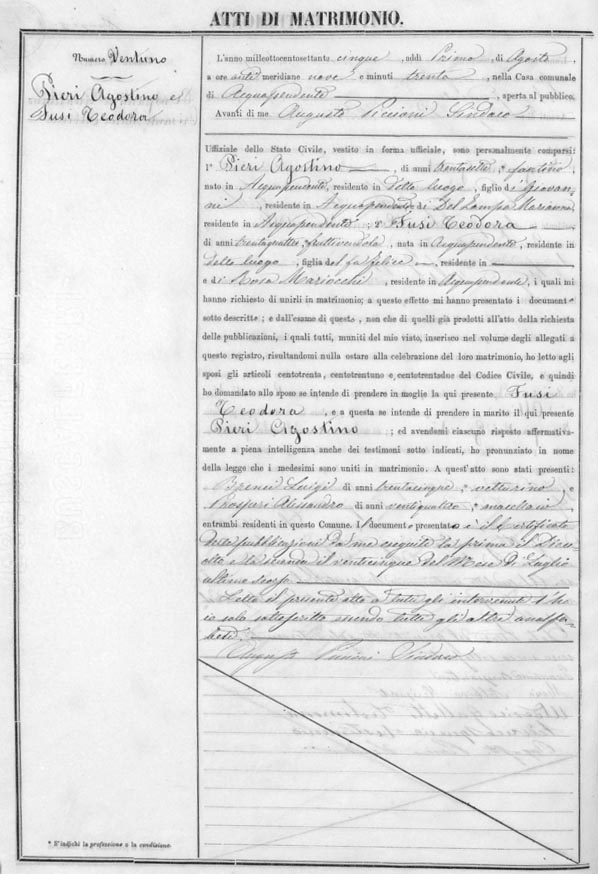 ATTI DI MATRIMONIO.
Numero Ventuno
Pieri Agostino e
Fusi Teodora
L'anno milleottocentosettanta cinque, addì Primo, di Agosto,
a ore anti meridiane nove e minuti trenta, nella Casa comunale
di Acquapendente, aperta al pubblico.
Avanti di me Augusto Piccioni Sindaco
Uffiziale dello Stato Civile, vestito in forma ufficiale, sono personalmente comparsi:
1° Pieri Agostino, di anni trentasette, fantino,
nato in Acquapendente, residente in detto luogo, figlio di Giovan-
ni, residente in Acquapendente, e di Del Sampo Marianna
residente in Acquapendente; 2° Fusi Teodora
di anni trentaquattro, fruttivendola, nata in Acquapendente, residente in
detto luogo, figlia del fu Felice, residente in
e di Rosa Mariocchi, residente in Acquapendente, i quali mi
hanno richiesto di unirli in matrimonio; a questo effetto mi hanno presentato i documenti
sotto descritti; e dall'esame di questi, non che di quelli già prodotti all'atto della richiesta
delle pubblicazioni, i quali tutti, muniti del mio visto, inserisco nel volume degli allegati a
questo registro, risultandomi nulla ostare alla celebrazione del loro matrimonio, ho letto agli
sposi gli articoli centotrenta, centotrentuno e centotrentadue del Codice Civile, e quindi
ho domandato allo sposo se intende di prendere in moglie la qui presente Fusi
Teodora, e a questa se intende di prendere in marito il qui presente
Pieri Agostino; ed avendomi ciascuno risposto affermativa-
mente a piena intelligenza anche dei testimoni sotto indicati, ho pronunziato in nome
della legge che i medesimi sono uniti in matrimonio. A quest'atto sono stati presenti:
Luigi di anni trentacinque, vetturino, e
Prosperi Alessandro di anni ventiquattro, macellaio,
entrambi residenti in questo Comune. I documenti presentati è il Certificato
delle pubblicazioni da me eseguite la prima il Dicio-
otto e la seconda il venticinque del Mese di Luglio
ultimo scorso.
Letto il presente atto a tutti gli intervenuti l'ho
io solo sottoscritto essendo tutti gli altri analfa-
beti.
Augusto Piccioni Sindaco
* S'indichi la professione o la condizione.